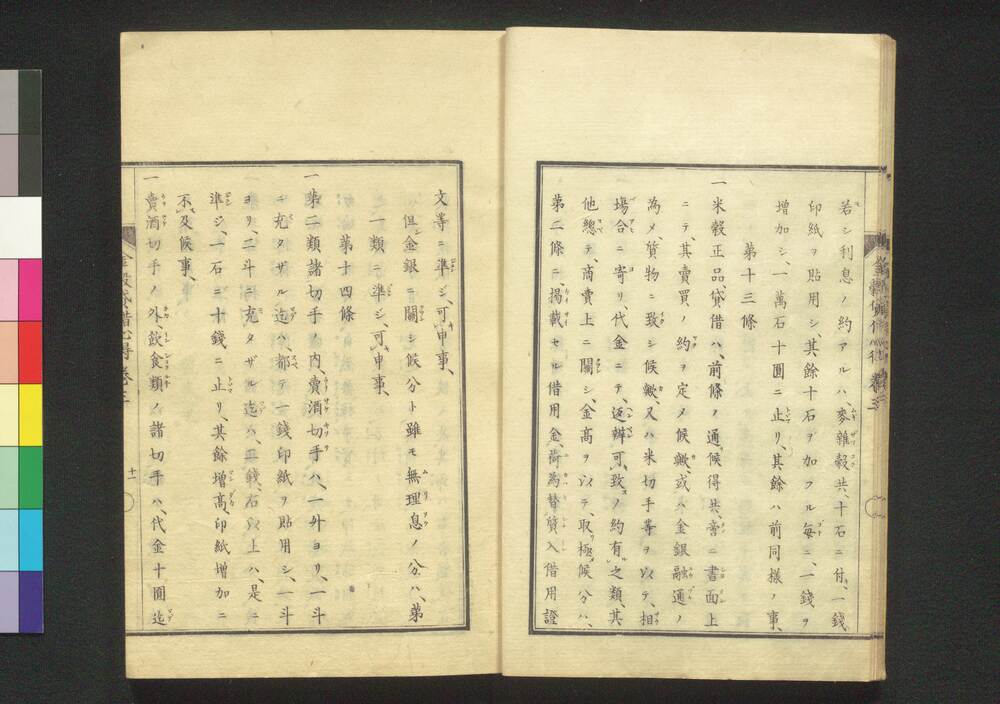 若シ利息ノ約アルハ、麥雜穀共、十石ニ付、一錢
印紙ヲ貼用シ其餘十石ヲ加フル每ニ、一錢ヲ
増加シ、一萬石十圓ニ止リ、其餘ハ前同樣ノ事、
第十三條
一米穀正品、貸借ハ、前條ノ通候得共、書面上
ニテ、其賣買ノ約ヲ定メ候歟、或ハ金銀融通ノ
為メ、質物ニ致シ候歟、又ハ米切手等ヲ以テ、相
場合ニ寄リ、代金ニテ、返辨可致ノ約有之類、其
他總テ、商賣上ニ關シ、金高ヲ以テ、取極候分ハ、
第二條ニ、掲載セル借用金、荷為替質入借用證
文等ニ準シ、可申事、
但金銀ニ關シ候分ト雖モ無理息ノ分ハ、第
一類ニ準シ、可申事、
第十四條
一第二類諸切手ノ內、賣酒切手ハ、一升ヨリ、一斗
ニ充タザル迄ハ、都テ一錢印紙ヲ貼用シ、一斗
ヨリ、二斗ニ充タザル迄ハ、二錢、石以上ハ、是ニ
準シ、一石ニ十錢ニ止リ、其餘增高、印紙增加ニ
不及候事、
一賣酒切手ノ外、飲食類ノ諸切手ハ、代金十圓迄
金穀貸借心得 卷三
十一